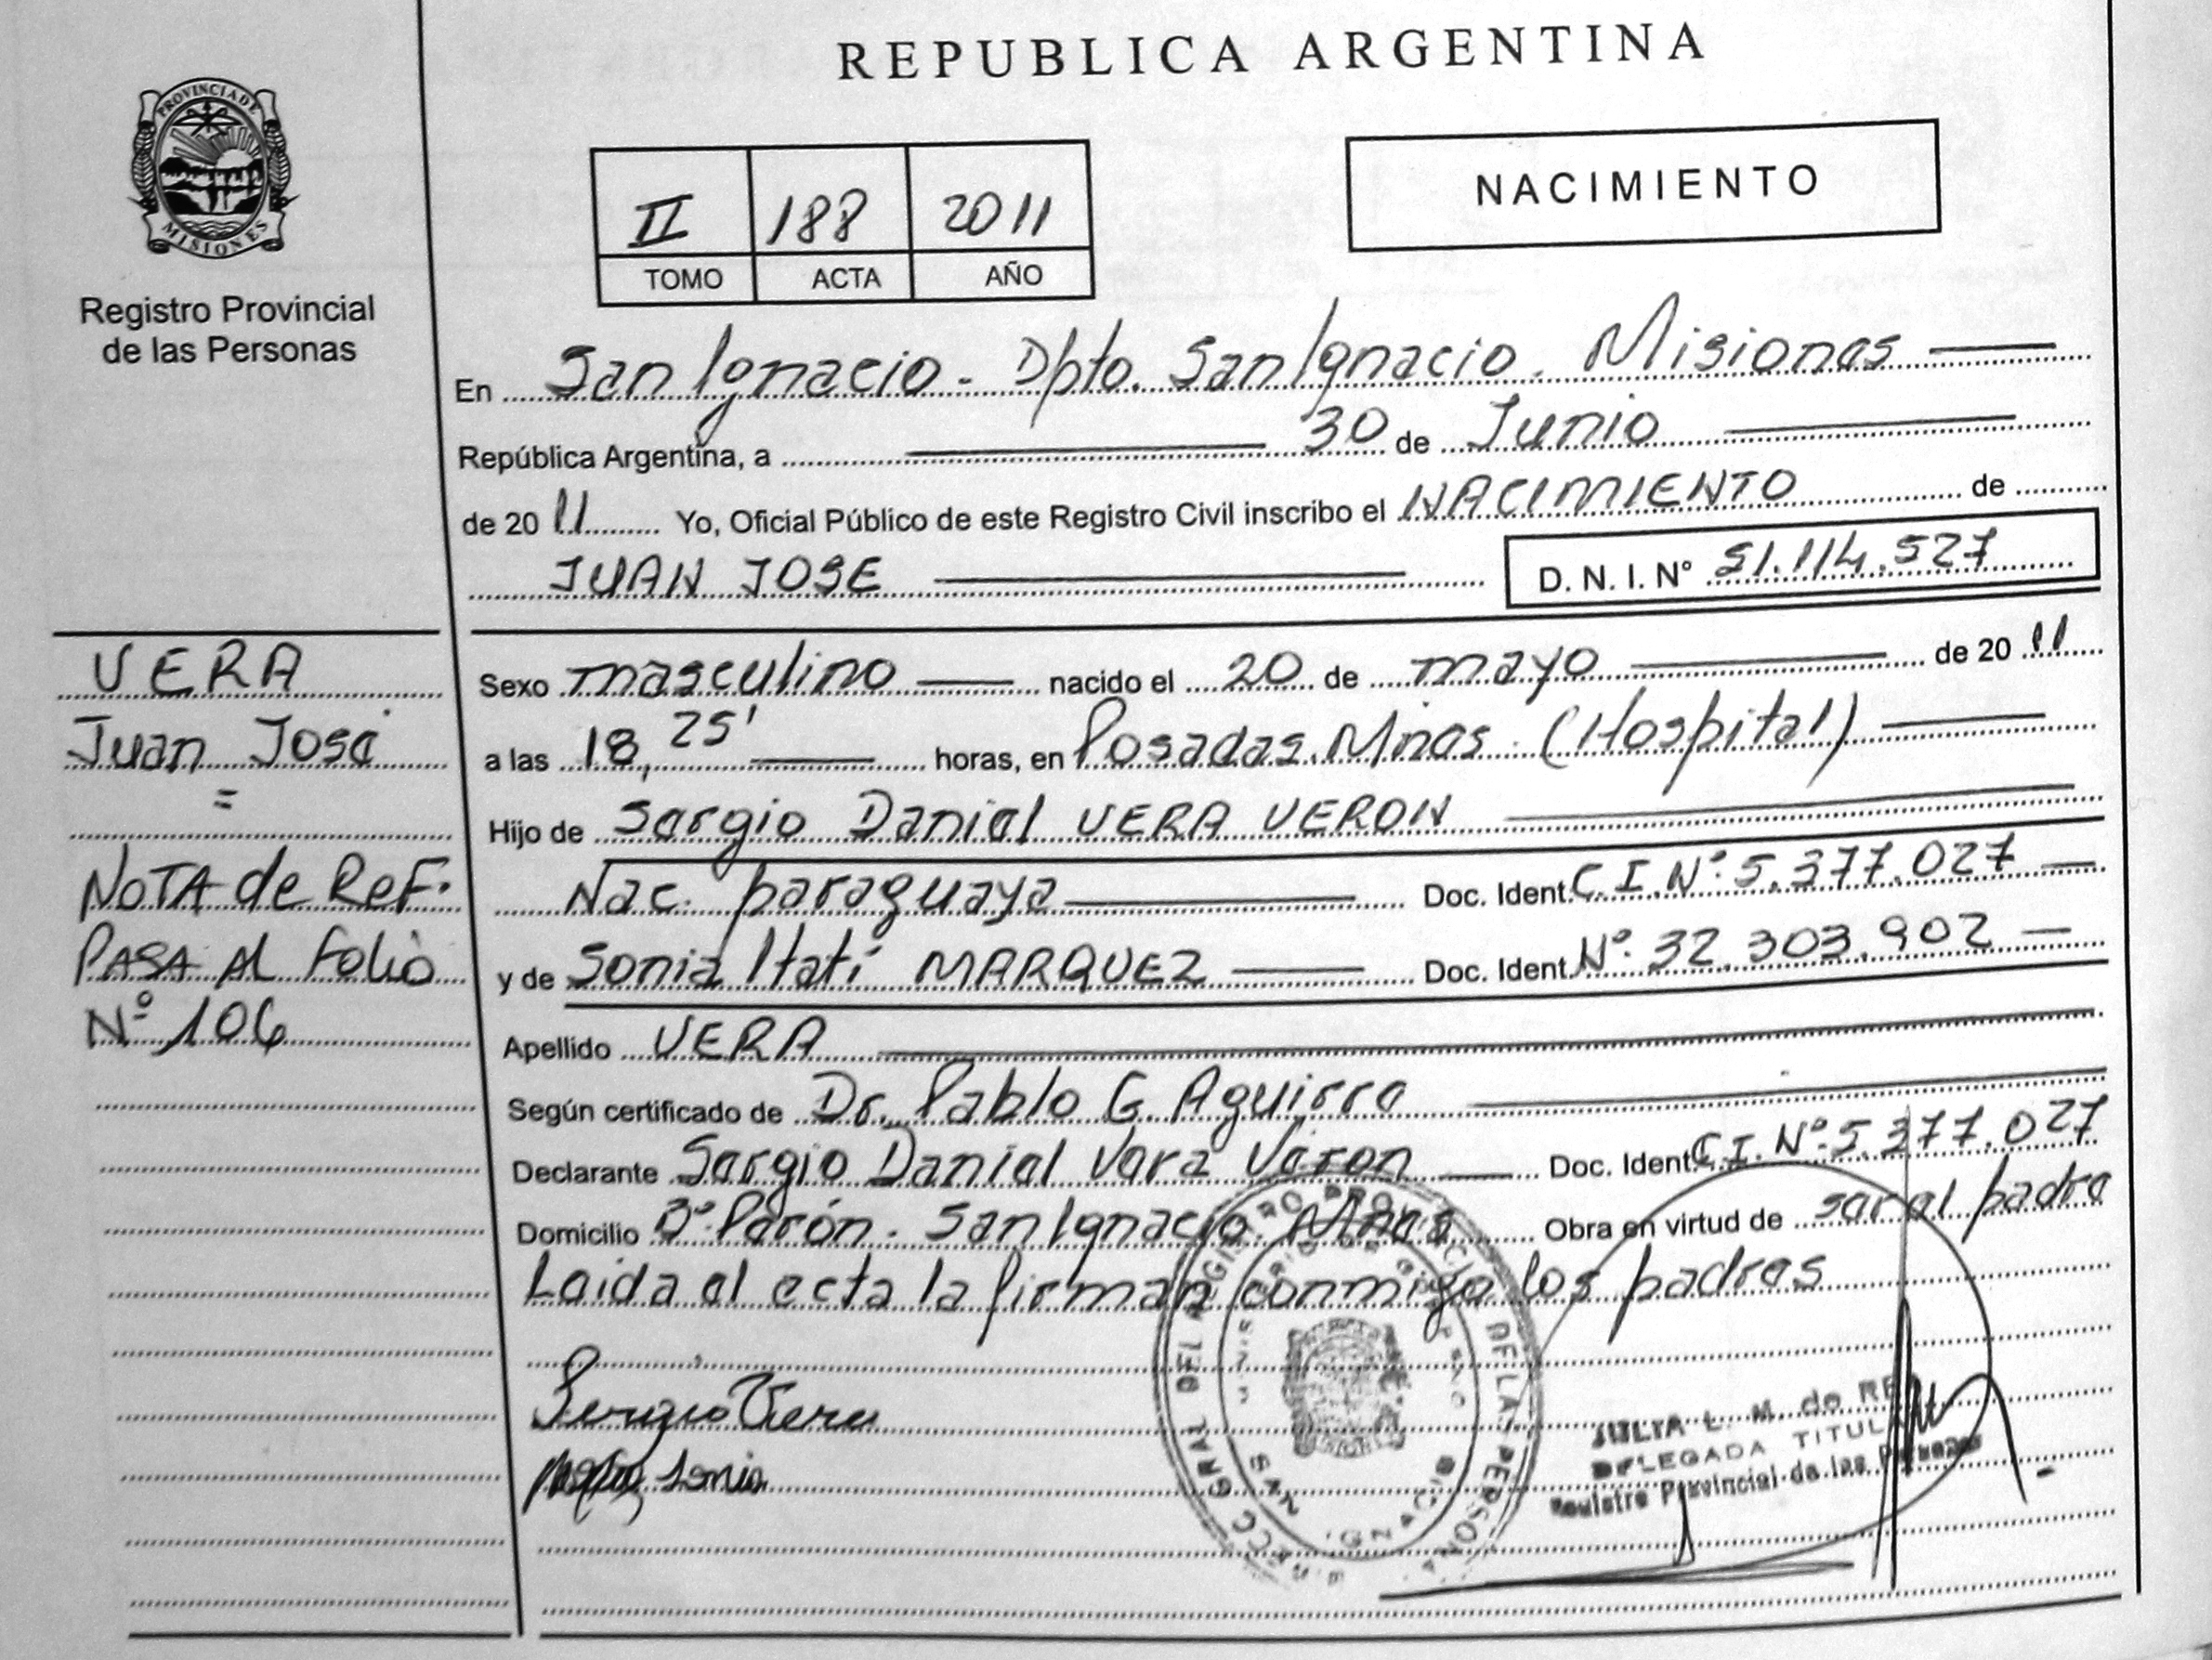 REPUBLICA ARGENTINA
PROVINCIA DE
MISIONES
Registro Provincial
de las Personas
II 188 2011
TOMO ACTA AÑO
NACIMIENTO
En San Ignacio - Dpto. San Ignacio. Misiones
República Argentina, a 30 de Junio
de 20 11 Yo, Oficial Público de este Registro Civil inscribo el NACIMIENTO de
JUAN JOSE D. N. I. N° 51.114.527
VERA
Juan José
=
NOTA de ReF.
PASA Al Folio
Nº 106
Sexo masculino nacido el 20 de mayo de 20 11
a las 18,25' horas, en Posadas. Mnes. (Hospital)
Hijo de Sergio Daniel VERA VERON
Nac. paraguaya Doc. Ident. C.I.Nº:5.377.027
y de Sonia Itatí MARQUEZ Doc. Ident. Nº: 32.303.902
Apellido VERA
Según certificado de Dr. Pablo G. Aguirre
Declarante Sergio Daniel Vera Veron Doc. Ident. C.I.Nº:5.377.027
Domicilio Bº Perón - San Ignacio. Mnes Obra en virtud de ser el padre
Leida el acta la firman conmigo los padres
Sergio Vera
Sonia
JULIA L. M. de
DELEGADA TITUL
Registro Provincial de las Personas